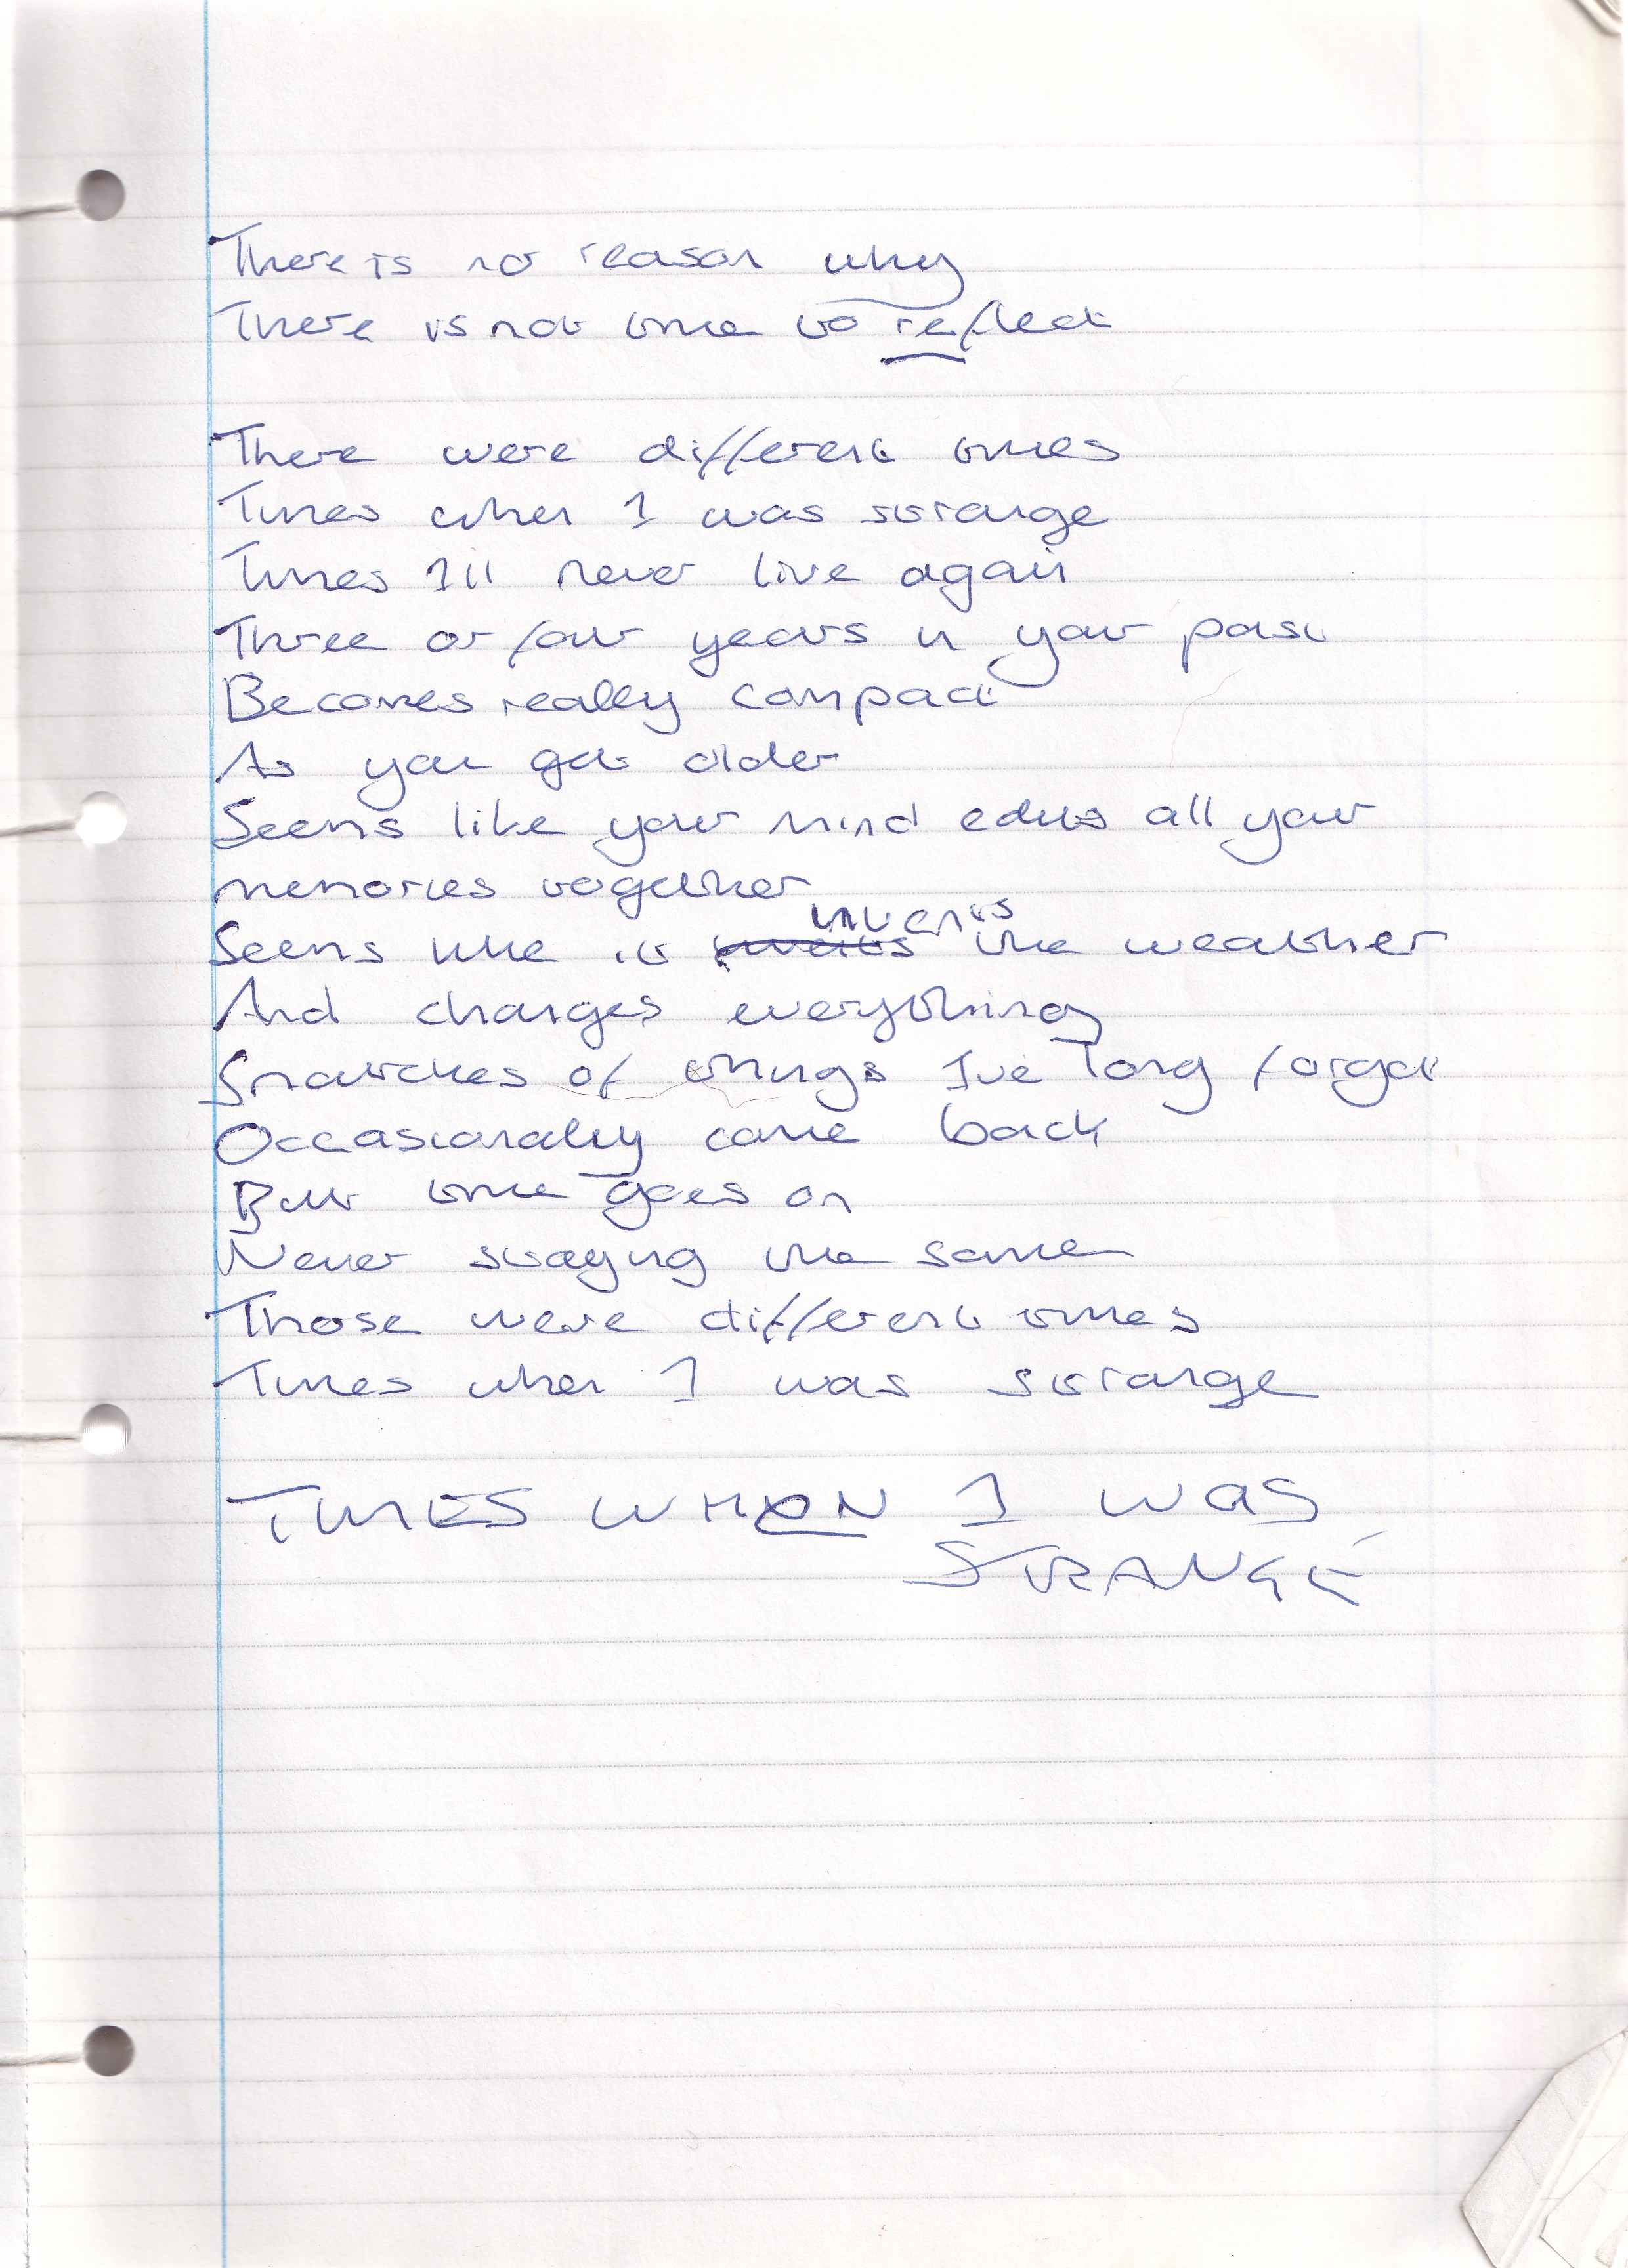 There is no reason why
There is not time to reflect
There were different times
Times when I was strange
Times Ill never live again
Three or four years in your past
Becomes really compact
As you get older
Seems like your mind edits all your
memories together
invents
Seems like it the weather
And changes everything
Snatches of things Ive long forgot
Occasionally come back
But time goes on
Never staying the same
Those were different times
Times when I was strange
TIMES WHEN I WAS
STRANGE